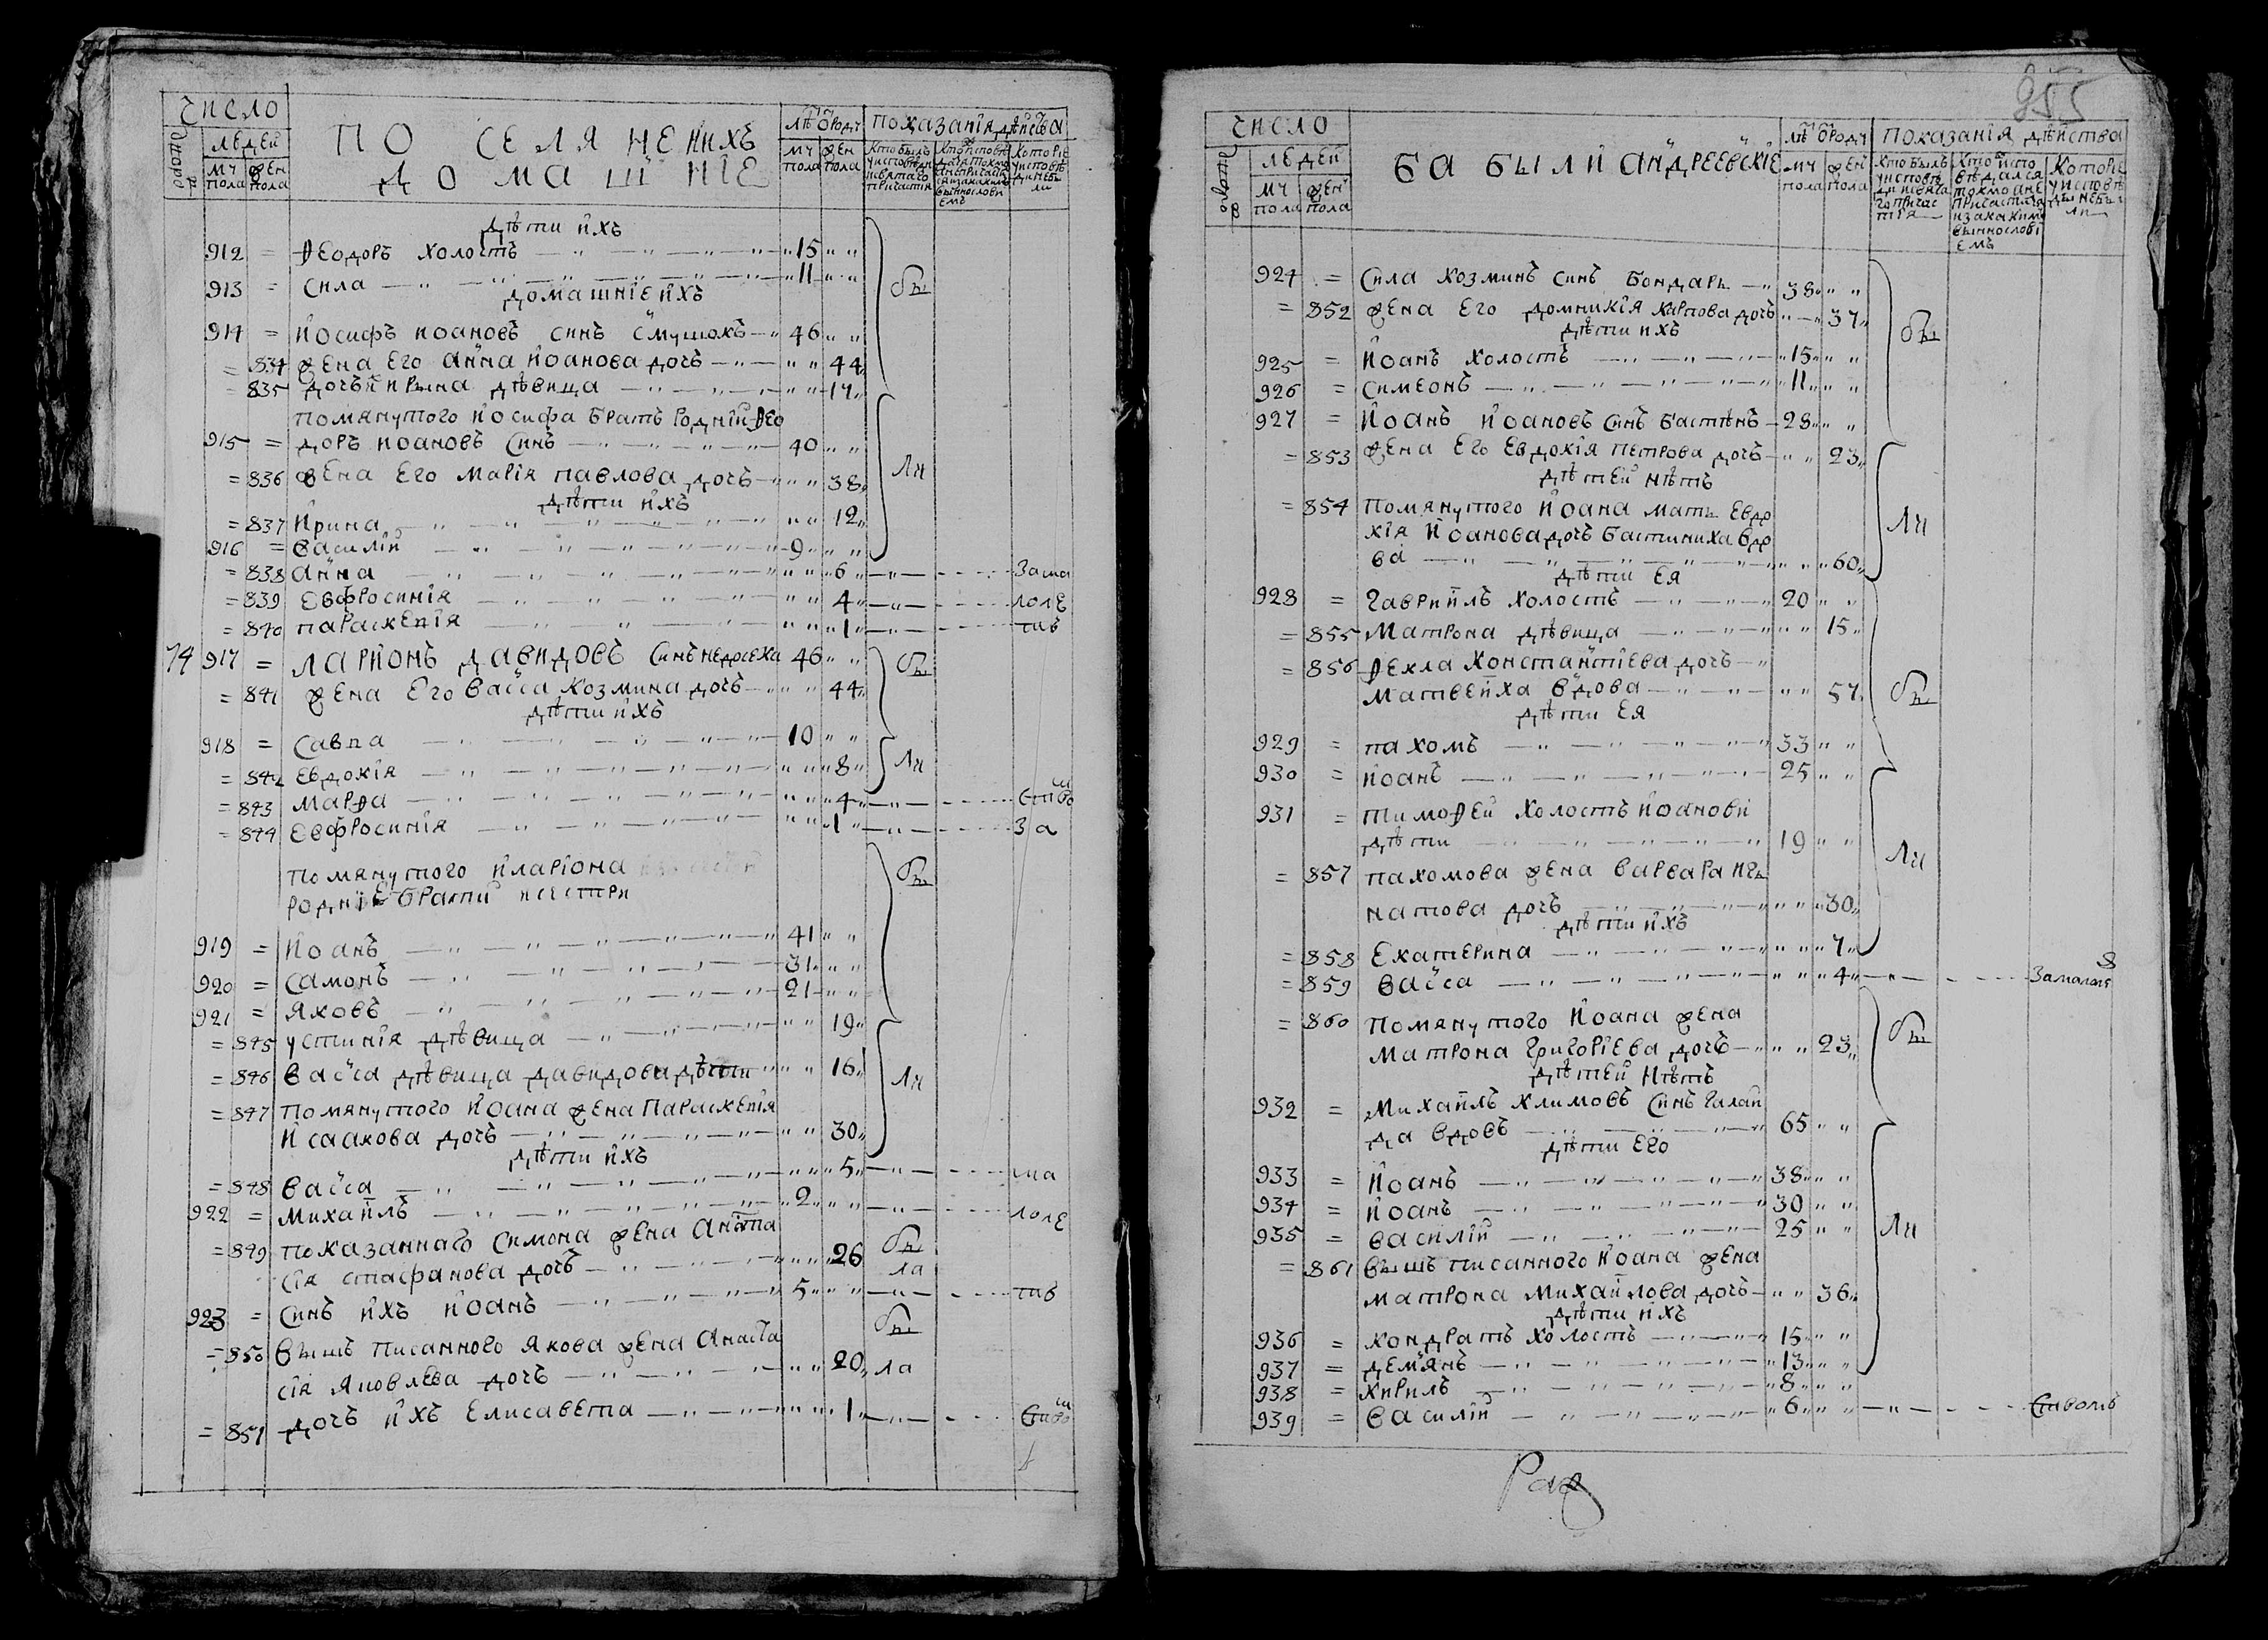 число
людей
мч пола
жен пола
ПО СЕЛЯНЕ НИХЪ
ДОМАШНІЕ
лѣ ѿ роду
мч пола
жен пола
показанія дѣйства
дѣти ихъ
912 = Ѳеодоръ холостъ 15
913 = Сила 11
домашніе ихъ
914 = Йосифъ иоановъ синъ Смушокъ 46
= 834 жена Его Анна Йоанова дочъ 44
= 835 дочъ Ирына дѣвица 17
помянутого Йосифа братъ родній Ѳео
915 = доръ иоановъ Синъ 40
= 836 жена Его Марія павлова дочъ 38
дѣти ихъ
= 837 Ирина 12
916 = василій 9
= 838 Анна 6 зама
= 839 Евфросинія 4 лолѣ
= 840 параскепія 1 тнв
74 917 = Ларіонъ давидовъ Синъ 46
= 841 жена Его Васса Козмина дочъ 44
дѣти ихъ
918 = Савпа 10
= 842 Евдокія 8
= 843 Марѳа 4
= 844 Евфросинія 1 за
помянутого Иларіона
родніе брати исестри
919 = Йоанъ 41
920 = Самонъ 31
921 = Яковъ 21
= 845 устинія дѣвица 19
= 846 Васса дѣвица давидови дѣти 16
= 847 помянутого Йоана жена Параскепія
Исаакова дочъ 30
дѣти ихъ
= 848 Васса 5 ма
922 = Михаилъ 2 лолѣ
= 849 показаннаго Симона жена Анаста
сія стафанова дочъ 26 бы ла
923 = Синъ ихъ Йоанъ 5 тнв
= 850 вышъ писанного Якова жена Анаста
сія Яковлева дочъ 20 бы ла
= 851 дочъ ихъ Елисавета 1
955
число
людей
мч пола
жен пола
БАБЫЛИ АНДРЕЕВСКІЕ
лѣ ѿ роду
мч пола
жен пола
показанія дѣйства
924 = Сила Козминъ синъ Бондарь 38
= 852 жена Его домникія Карпова дочъ 37
дѣти ихъ
925 = Йоанъ холостъ 15
926 = Симеонъ 11
927 = Йоанъ Йоановъ Синъ Бастѣнъ 28
= 853 жена Его Евдокія Петрова дочъ 23
дѣтей нѣтъ
= 854 помянутого Йоана мать Евдо
кія Йоанова дочъ Бастиниха вдо
ва 60
дѣти Ея
928 = Гавриилъ холостъ 20
= 855 Матрона дѣвица 15
= 856 Ѳекла Константіева дочъ
Матвеиха вдова 57
дѣти Ея
929 = пахомъ 33
930 = Йоанъ 25
931 = тимоѲей холостъ Йоанови
дѣти 19
= 857 пахомова жена варвара Игъ
натова дочъ 30
дѣти ихъ
= 858 Екатерина 7
= 859 Васса 4
= 860 помянутого Йоана жена
Матрона Григоріева дочъ 23
дѣтей нѣтъ
932 = Михаилъ Климовъ Синъ Галай
да вдовъ 65
дѣти Его
933 = Йоанъ 38
934 = Йоанъ 30
935 = василій 25
= 861 вышъ писанного Йоана жена
матрона Михайлова дочъ 36
дѣти ихъ
936 = Кондратъ холостъ 15
937 = демянъ 13
938 = Кирилъ 8
939 = василій 6